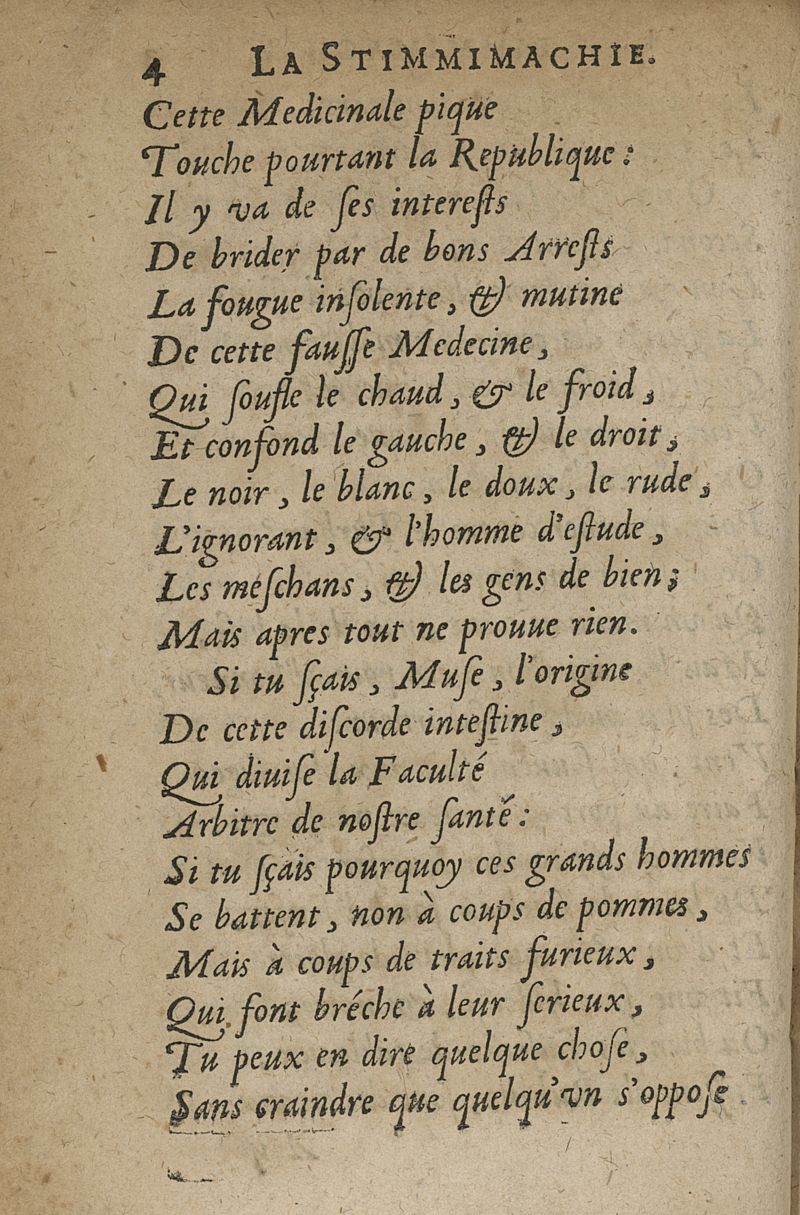 4 LA STIMMIMACHIE.
Cette Medicinale pique
Touche pourtant la Republique :
Il y va de ſes intereſts
De brider par de bons Arreſts
La fougue inſolente, & mutine
De cette fauſſe Medecine,
Qui ſoufle le chaud, & le froid,
Et confond le gauche, & le droit,
Le noir, le blanc, le doux, le rude,
L'ignorant, & l'homme d'eſtude,
Les meſchans, & les gens de bien;
Mais apres tout ne prouue rien.
Si tu ſçais, Muſe, l'origine
De cette diſcorde inteſtine,
Qui diuiſe la Faculté
Arbitre de noſtre ſanté :
Si tu ſçais pourquoy ces grands hommes
Se battent, non à coups de pommes,
Mais à coups de traits furieux,
Qui font bréche à leur ſerieux,
Tu peux en dire quelque choſe,
Sans craindre que quelqu'vn s'oppoſe